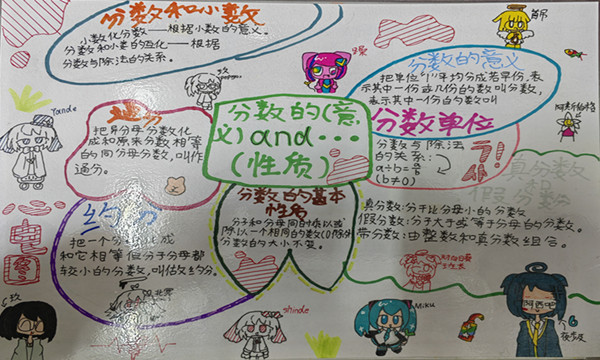 分数和小数
小数化分数——根据小数的意义。
分数和小数的互化——根据
分数与除法的关系。
分数的意义
把单位"1"平均分成若干份,表
示其中一份或几份的数叫分数,
表示其中一份的数叫
分数单位
通分
把异分母分数化
成和原来分数相等
的同分母分数,叫作
通分。
分数的(意
义)and…
(性质)
分数与除法
的关系:
a÷b=a/b
(b≠0)
真分数
和
假分数
真分数:分子比分母小的分数
假分数:分子大于或等于分母的分数。
带分数:由整数和真分数组合。
约分
把一个分数化成
和它相等但分子分母都
较小的分数,叫做约分。
分数的基本
性质
分子和分母同时乘以或
除以一个相同的数(0除外)
分数的大小不变。
shinde
Miku